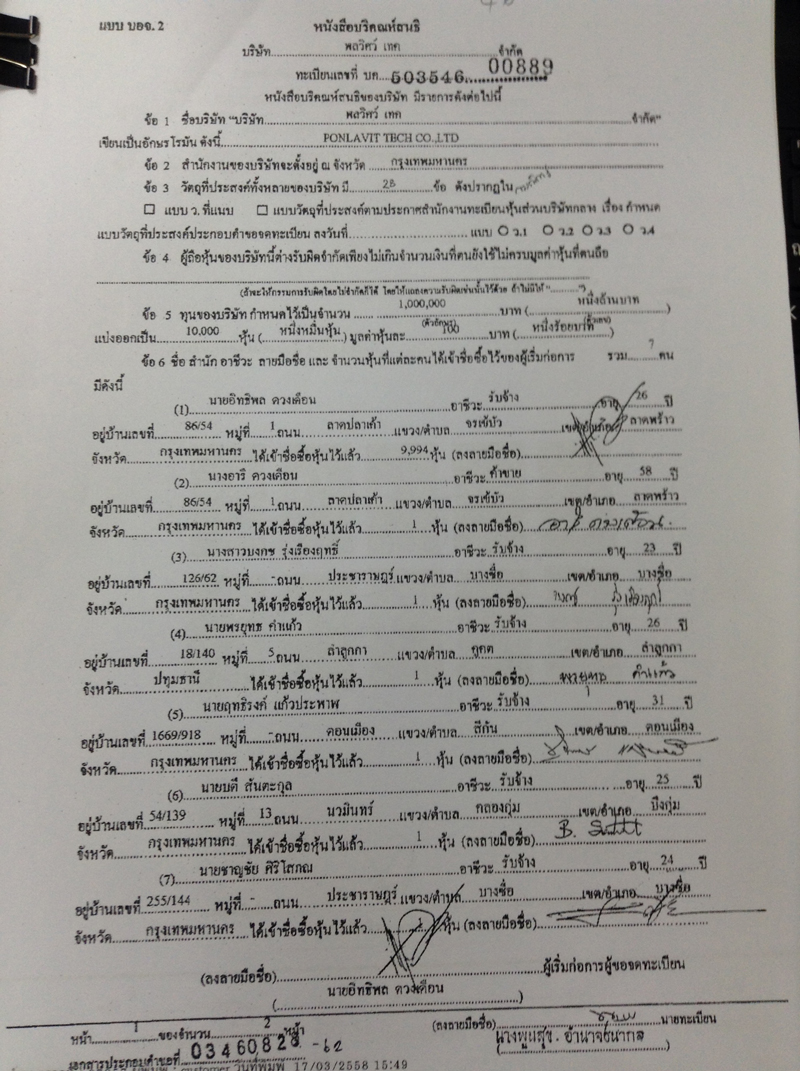 แบบ บอจ. 2
หนังสือบริคณห์สนธิ
บริษัท พลวิศว์ เทค จำกัด
ทะเบียนเลขที่ บค. 503546 00889
หนังสือบริคณห์สนธิของบริษัท มีรายการดังต่อไปนี้
ข้อ 1 ชื่อบริษัท "บริษัท พลวิศว์ เทค จำกัด"
เขียนเป็นอักษรโรมัน ดังนี้ PONLAVIT TECH CO.,LTD
ข้อ 2 สำนักงานของบริษัทจะตั้งอยู่ ณ จังหวัด กรุงเทพมหานคร
ข้อ 3 วัตถุที่ประสงค์ทั้งหลายของบริษัท มี 28 ข้อ ดังปรากฏใน
☐ แบบ ว. ที่แนบ ☐ แบบวัตถุที่ประสงค์ตามประกาศสำนักงานทะเบียนหุ้นส่วนบริษัทกลาง เรื่อง กำหนด
แบบวัตถุที่ประสงค์ประกอบคำขอจดทะเบียน ลงวันที่ แบบ O ว.1 O ว.2 O ว.3 O ว.4
ข้อ 4 ผู้ถือหุ้นของบริษัทนี้ต่างรับผิดจำกัดเพียงไม่เกินจำนวนเงินที่ตนยังใช้ไม่ครบมูลค่าหุ้นที่ตนถือ
(ถ้าจะให้กรรมการรับผิดโดยไม่จำกัดก็ได้ โดยให้แถลงความรับผิดเช่นนั้นไว้ด้วย ถ้าไม่มีให้ "..........")
ข้อ 5 ทุนของบริษัท กำหนดไว้เป็นจำนวน 1,000,000 บาท (หนึ่งล้านบาท
(ตัวอักษร) (ตัวอักษร)
แบ่งออกเป็น 10,000 หุ้น (หนึ่งหมื่นหุ้น) มูลค่าหุ้นละ 100 บาท (หนึ่งร้อยบาท)
ข้อ 6 ชื่อ สำนัก อาชีวะ ลายมือชื่อ และ จำนวนหุ้นที่แต่ละคนได้เข้าชื่อซื้อไว้ของผู้เริ่มก่อการ รวม 7 คน
มีดังนี้
(1) นายอิทธิพล ดวงเดือน อาชีวะ รับจ้าง อายุ 26 ปี
อยู่บ้านเลขที่ 86/54 หมู่ที่ 1 ถนน ลาดปลาเค้า แขวง/ตำบล จรเข้บัว เขต/อำเภอ ลาดพร้าว
จังหวัด กรุงเทพมหานคร ได้เข้าชื่อซื้อหุ้นไว้แล้ว 9,994 หุ้น (ลงลายมือชื่อ)
(2) นางอารี ดวงเดือน อาชีวะ ค้าขาย อายุ 58 ปี
อยู่บ้านเลขที่ 86/54 หมู่ที่ 1 ถนน ลาดปลาเค้า แขวง/ตำบล จรเข้บัว เขต/อำเภอ ลาดพร้าว
จังหวัด กรุงเทพมหานคร ได้เข้าชื่อซื้อหุ้นไว้แล้ว 1 หุ้น (ลงลายมือชื่อ) อารี ดวงเดือน
(3) นางสาวบงกช รุ่งเรืองฤทธิ์ อาชีวะ รับจ้าง อายุ 23 ปี
อยู่บ้านเลขที่ 126/62 หมู่ที่ - ถนน ประชาราษฎร์ แขวง/ตำบล บางซื่อ เขต/อำเภอ บางซื่อ
จังหวัด กรุงเทพมหานคร ได้เข้าชื่อซื้อหุ้นไว้แล้ว 1 หุ้น (ลงลายมือชื่อ)
(4) นายพรยุทธ คำแก้ว อาชีวะ รับจ้าง อายุ 26 ปี
อยู่บ้านเลขที่ 18/140 หมู่ที่ 5 ถนน ลำลูกกา แขวง/ตำบล คูคต เขต/อำเภอ ลำลูกกา
จังหวัด ปทุมธานี ได้เข้าชื่อซื้อหุ้นไว้แล้ว 1 หุ้น (ลงลายมือชื่อ) คำแก้ว
(5) นายฤทธิรงค์ แก้วประพาพ อาชีวะ รับจ้าง อายุ 31 ปี
อยู่บ้านเลขที่ 1669/918 หมู่ที่ - ถนน ดอนเมือง แขวง/ตำบล สีกัน เขต/อำเภอ ดอนเมือง
จังหวัด กรุงเทพมหานคร ได้เข้าชื่อซื้อหุ้นไว้แล้ว 1 หุ้น (ลงลายมือชื่อ)
(6) นายบดี สันตะกุล อาชีวะ รับจ้าง อายุ 25 ปี
อยู่บ้านเลขที่ 54/139 หมู่ที่ 13 ถนน นวมินทร์ แขวง/ตำบล คลองกุ่ม เขต/อำเภอ บึงกุ่ม
จังหวัด กรุงเทพมหานคร ได้เข้าชื่อซื้อหุ้นไว้แล้ว 1 หุ้น (ลงลายมือชื่อ) B.
(7) นายชาญชัย ศิริโสภณ อาชีวะ รับจ้าง อายุ 24 ปี
อยู่บ้านเลขที่ 255/144 หมู่ที่ - ถนน ประชาราษฎร์ แขวง/ตำบล บางซื่อ เขต/อำเภอ บางซื่อ
จังหวัด กรุงเทพมหานคร ได้เข้าชื่อซื้อหุ้นไว้แล้ว หุ้น (ลงลายมือชื่อ)
(ลงลายมือชื่อ) ผู้เริ่มก่อการผู้ขอจดทะเบียน
(นายอิทธิพล ดวงเดือน)
หน้า 1 ของจำนวน 2 หน้า (ลงลายมือชื่อ) นายทะเบียน
เอกสารประกอบคำขอที่ 03460828 -62 (นางพูนสุข อำนาจธนากล)
customer วันที่พิมพ์ 17/03/2558 15:49